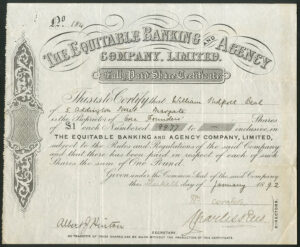 No
THE EQUITABLE BANKING AND AGENCY
COMPANY, LIMITED.
Fully Paid Share Certificate
This is to Certify that William
of 5 Addington Street Margate
is the Proprietor of One Founders Shares
of £1 each Numbered 9977 to inclusive, in
THE EQUITABLE BANKING AND AGENCY COMPANY, LIMITED,
subject to the Rules and Regulations of the said Company
and that there has been paid in respect of each of such
Shares the sum of One Pound.
Given under the Common Seal of the said Company
this day of January 1892
DIRECTORS.
Albert
SECRETARY.
NO TRANSFER OF THESE SHARES CAN BE MADE WITHOUT THE PRODUCTION OF THIS CERTIFICATE.